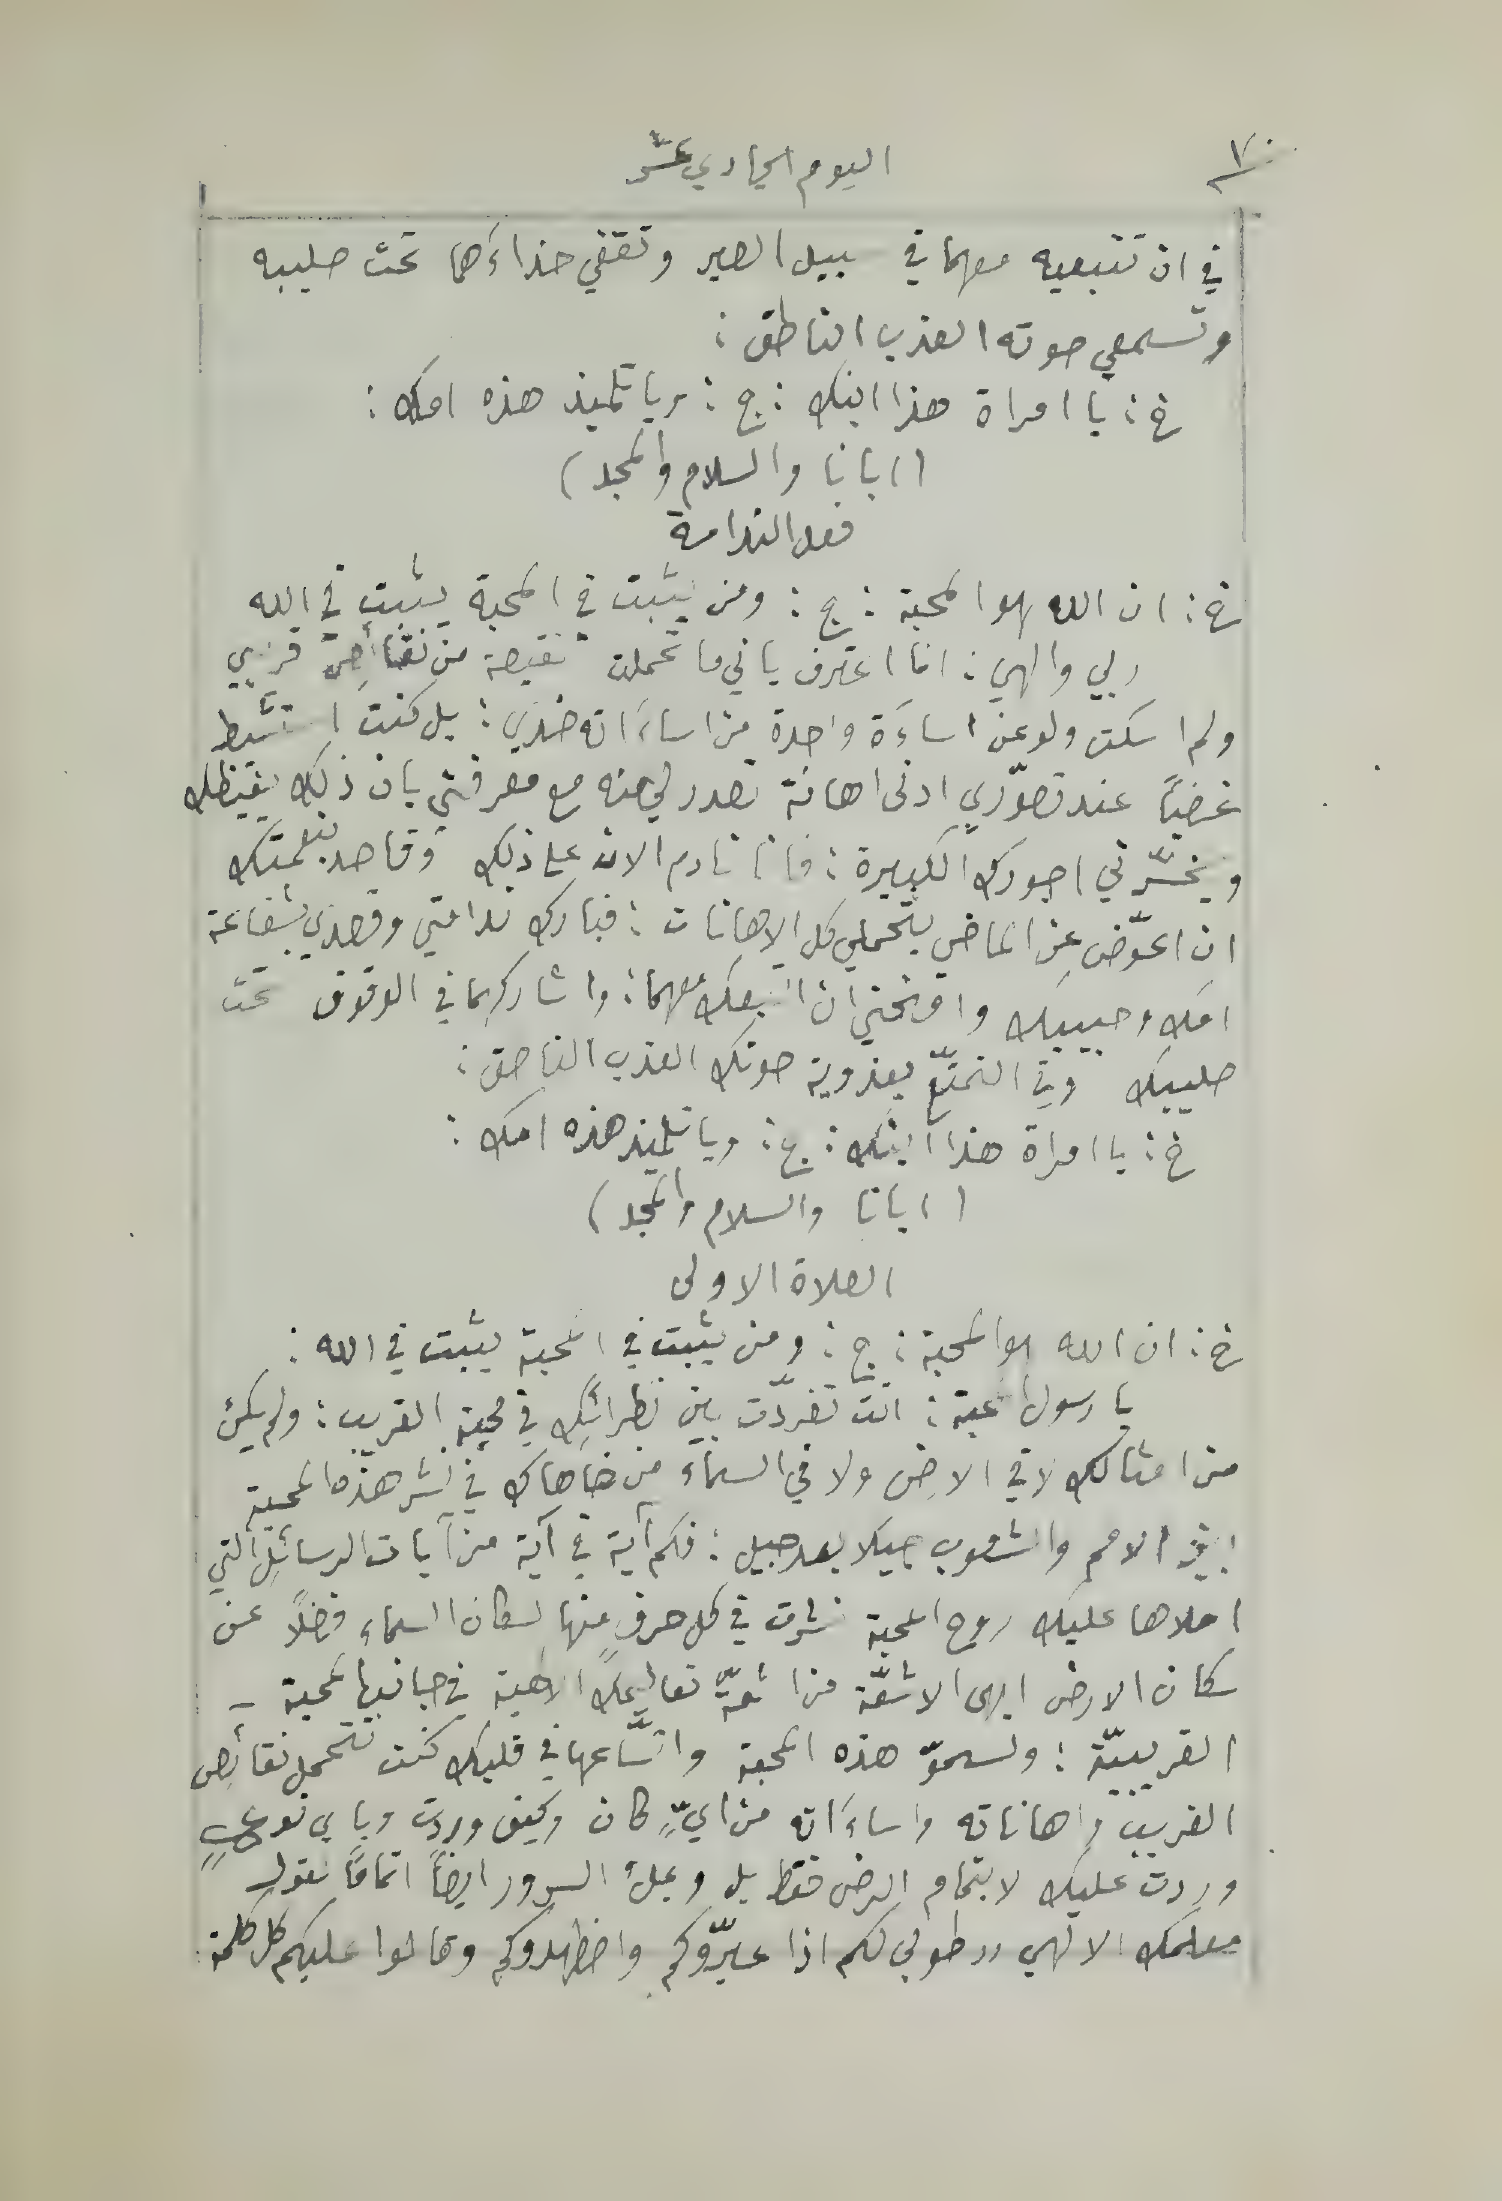 ٧٠
اليوم الحادي عشر
في ان تتبعيه معهما في سبيل الصبر وتقفي حذاءَهما تحت صليبه
وتسمعي صوته العذب الناطق :
خ : يا امراة هذا ابنك : ج : ويا تلميذ هذه امك :
( ابانا والسلام والمجد )
فعل الندامة
خ : ان الله هو المحبة : ج : ومن يثبت في المحبة يثبت في الله
ربي والهي : انا اعترف باني ما تحملت نقيصة من نقائص قريبي
ولم اسكت ولو عن اساءَة واحدة من اساءَاته ضدي : بل كنت استشيط
غضباً عند تصوّري ادنى اهانة تصدر لي منه مع معرفتي بان ذلك يغيظك
ويخسّرني اجورك الكبيرة : فانا نادم الان على ذلك وقاصد بنعمتك
ان اعوّض عن الماضي بتحملي كل الاهانات : فبارك ندامتي وقصدي بشفاعة
امك وحبيبك وامنحني ان اتبعك معهما : واشاركهما في الوقوف تحت
صليبك وفي التمتّع بعذوبة صوتك العذب الناطق :
خ : يا امراة هذا ابنك : ج : ويا تلميذ هذه امك :
( ابانا والسلام والمجد )
الصلاة الاولى
خ : ان الله هو المحبة : ج : ومن يثبت في المحبة يثبت في الله :
يا رسول المحبة : انت تفرّدت بين نظرائك في محبة القريب : ولم يكن
من امثالك لا في الارض ولا في السماء من ضاهاك في نشر هذه المحبة
بين الامم والشعوب جيلا بعد جيل : فكم آية في آية من آيات الرسائل التي
املاها عليك روح المحبة نشرت في كل حرفٍ منها لسكان السماء فضلاً عن
سكان الارض ابهى الاشعّة من اشعّة تعاليمك الالهية في جانب المحبة
القريبيّة : ولسموّ هذه المحبة واتّساعها في قلبك كنت تتحمل نقائص
القريب واهاناته واساءَاته من ايٍّ كان وكيف وردت وباي نوعٍ
وردت عليك لا بتمام الرضى فقط بل وبملء السرور ايضاً اتماماً لقول
معلمك الالهي " طوبى لكم اذا عيّروكم واضطهدوكم وقالوا عليكم كل كلمة